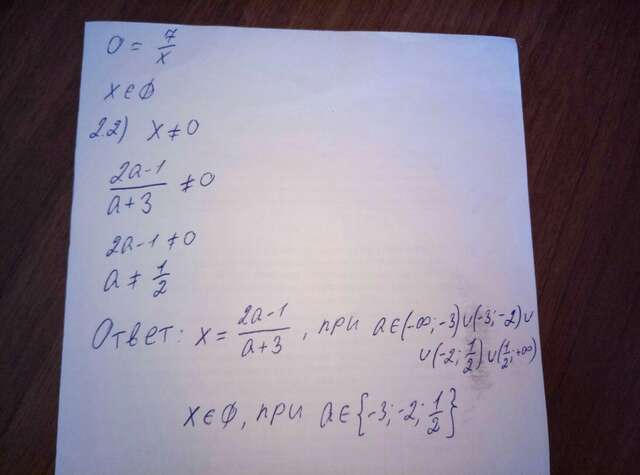 0 = 7/x
x∈∅
2.2) x ≠ 0
(2a-1)/(a+3) ≠ 0
2a-1 ≠ 0
a ≠ 1/2
Ответ: x = (2a-1)/(a+3), при a∈(-∞;-3)∪(-3;-2)∪
∪(-2;1/2)∪(1/2;+∞)
x∈∅, при a∈{-3;-2;1/2}